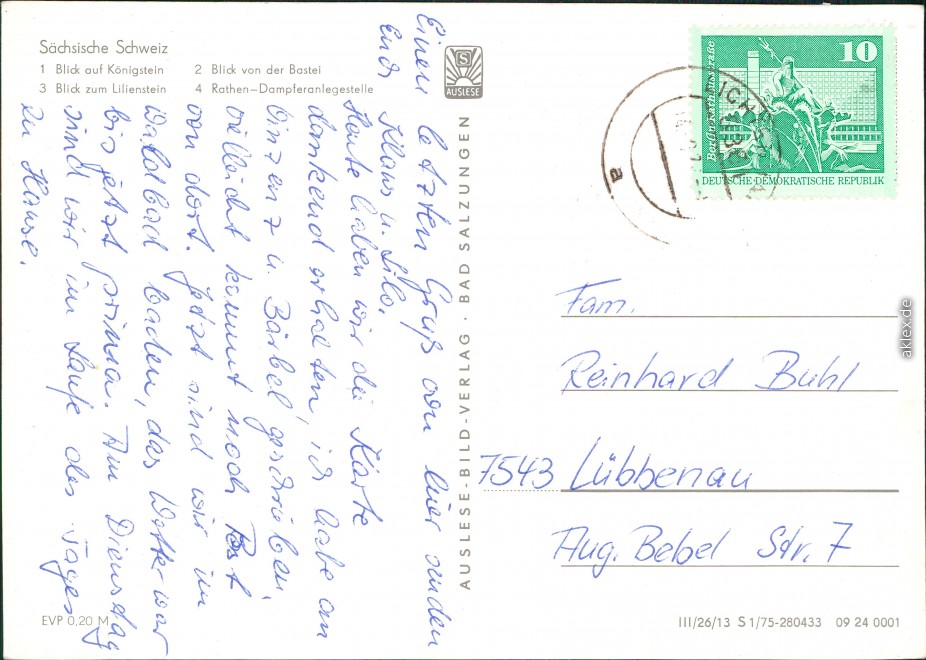 Sächsische Schweiz
1 Blick auf Königstein 2 Blick von der Bastei
3 Blick zum Lilienstein 4 Rathen–Dampferanlegestelle
S
AUSLESE
Einen letzten Gruß von hier senden
Euch Klaus u. Lilo.
Heute haben wir die Karte
dankend erhalten, ich habe an
u. Bärbel geschrieben,
vielleicht kommt noch Post
von dort. Jetzt sind wir im
Waldbad baden, das Wetter war
bis jetzt prima. Am Dienstag
sind wir im Laufe des Tages
zu Hause.
EVP 0,20 M
AUSLESE-BILD-VERLAG · BAD SALZUNGEN
10
Berlin, Rathausstraße
DEUTSCHE DEMOKRATISCHE REPUBLIK
a
Fam.
Reinhard Buhl
7543 Lübbenau
Aug. Bebel Str. 7
III/26/13 S 1/75-280433 09 24 0001
aklex.de